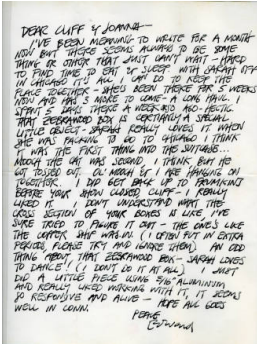 DEAR CLIFF & JOANNA—
I'VE BEEN MEANING TO WRITE FOR A MONTH
NOW BUT THERE SEEMS ALWAYS TO BE SOME
THING OR OTHER THAT JUST CAN'T WAIT - HARD
TO FIND TIME TO EAT OR SLEEP WITH SARAH OFF
IN CHICAGO IT'S ALL I CAN DO TO KEEP THE
PLACE TOGETHER - SHE'S BEEN THERE FOR 5 WEEKS
NOW AND HAS 3 MORE TO COME - A LONG HAUL. I
SPENT 5 DAYS THERE A WEEK AGO - HECTIC.
THAT ZEBRAWOOD BOX IS CERTIANLY A SPECIAL
LITTLE OBJECT - SARAH REALLY LOVES IT WHEN
SHE WAS PACKING TO GO TO CHICAGO I THINK
IT WAS THE FIRST THING INTO THE SUITCASE...
MOOCH THE CAT WAS SECOND, I THINK, BUT HE
GOT TOSSED OUT. OL' MOOCH & I ARE HANGING ON
TOGETHER. I DID GET BACK UP TO
BEFORE YOUR SHOW CLOSED CLIFF - I REALLY
LIKED IT. I DON'T UNDERSTAND WHAT THE
CROSS SECTION OF YOUR BOXES IS LIKE, I'VE
SURE TRIED TO FIGURE IT OUT - THE ONE'S LIKE
THE COPPER SHIP WAS IN. (I OFTEN PUT IN EXTRA
PERIODS, PLEASE TRY AND IGNORE THEM) AN ODD
THING ABOUT THAT ZEBRAWOOD BOX - SARAH LOVES
TO DANCE! (I DON'T DO IT AT ALL) I JUST
DID A LITTLE PIECE USING 5/16" ALUMINUM
AND REALLY LIKED WORKING WITH IT, IT SEEMS
SO RESPONSIVE AND ALIVE - HOPE ALL GOES
WELL IN CONN.
PEACE